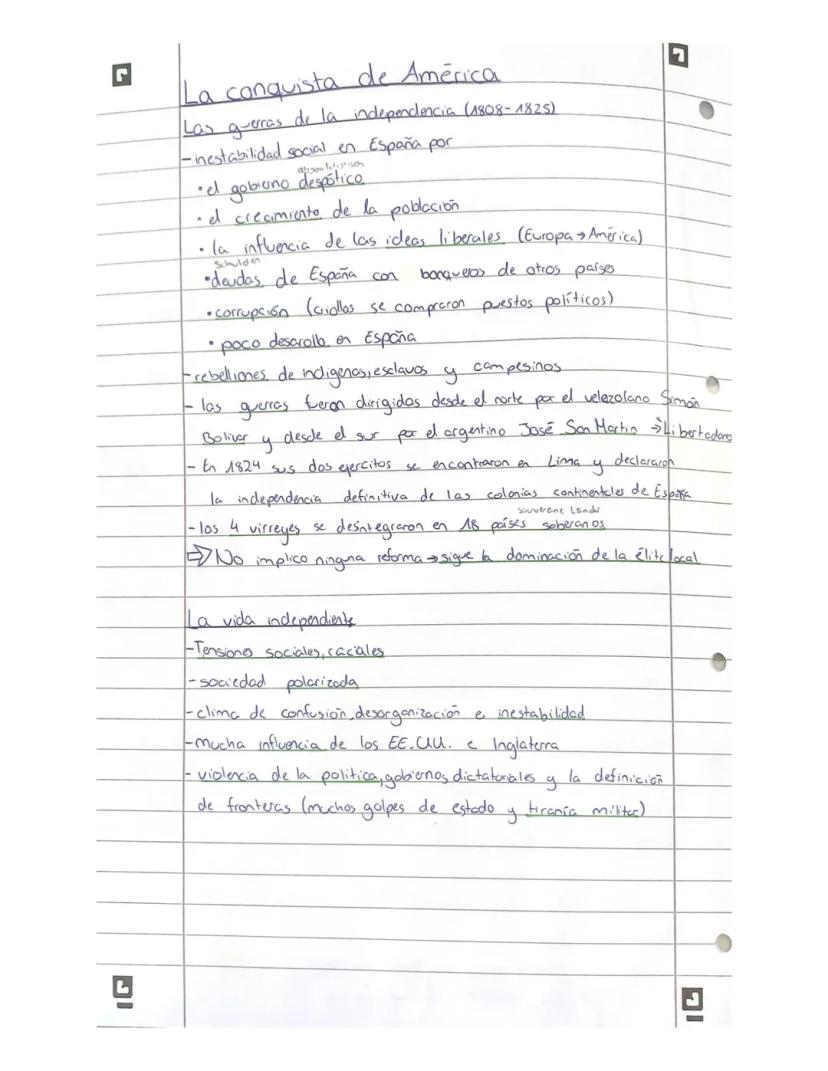 La conquista de América
Las guerras de la independencia (1808-1825)
- inestabilidad social en España por
absolutistisch
• el gobierno despótico
• el crecimiento de la población
• la influencia de las ideas liberales (Europa → América)
Schulden
• deudas de España con banqueros de otros países
• corrupción (criollos se compraron puestos políticos)
• poco desarollo en España
- rebelliones de indigenas, esclavos y campesinos
- las guerras fueron dirigidas desde el norte por el velezolano Simón
Bolivar y desde el sur por el argentino José San Martin → Libertadores
- En 1824 sus dos ejercitos se encontraron en Lima y declararon
la independencia definitiva de las colonias continentales de España
souveräne Länder
- los 4 virreyes se desintegraron en 18 países soberanos
⇒ No implico ninguna reforma → sigue la dominación de la élite local
La vida independiente
- Tensiones sociales, raciales
- sociedad polarizada
- clima de confusión, desorganización e inestabilidad
- mucha influencia de los EE.UU. e Inglaterra
- violencia de la politica, gobiernos dictatoriales y la definición
de fronteras (muchos golpes de estado y tiranía militar)